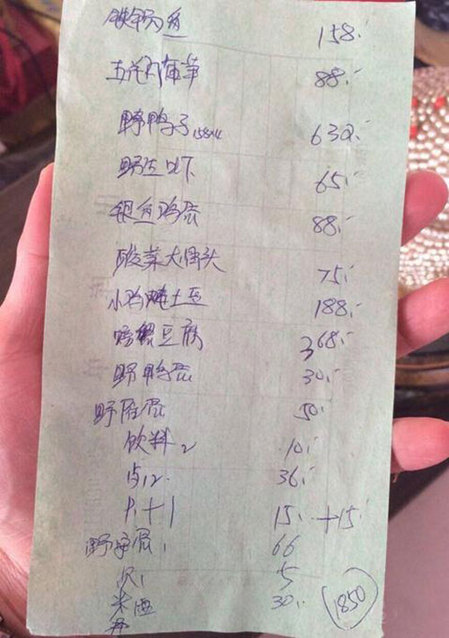 铁锅鱼 158.-
五花肉 88.-
野鸭子 158x4 632.-
65.-
银鱼鸡蛋 88.-
酸菜大骨头 75.-
小鸡炖土豆 188.-
螃蟹豆腐 368.-
野鸭蛋 30.-
蛋 50.-
饮料 2 10.-
12. 36.-
1+1 15.- +15.-
蛋 66
5
米 30.- 1850